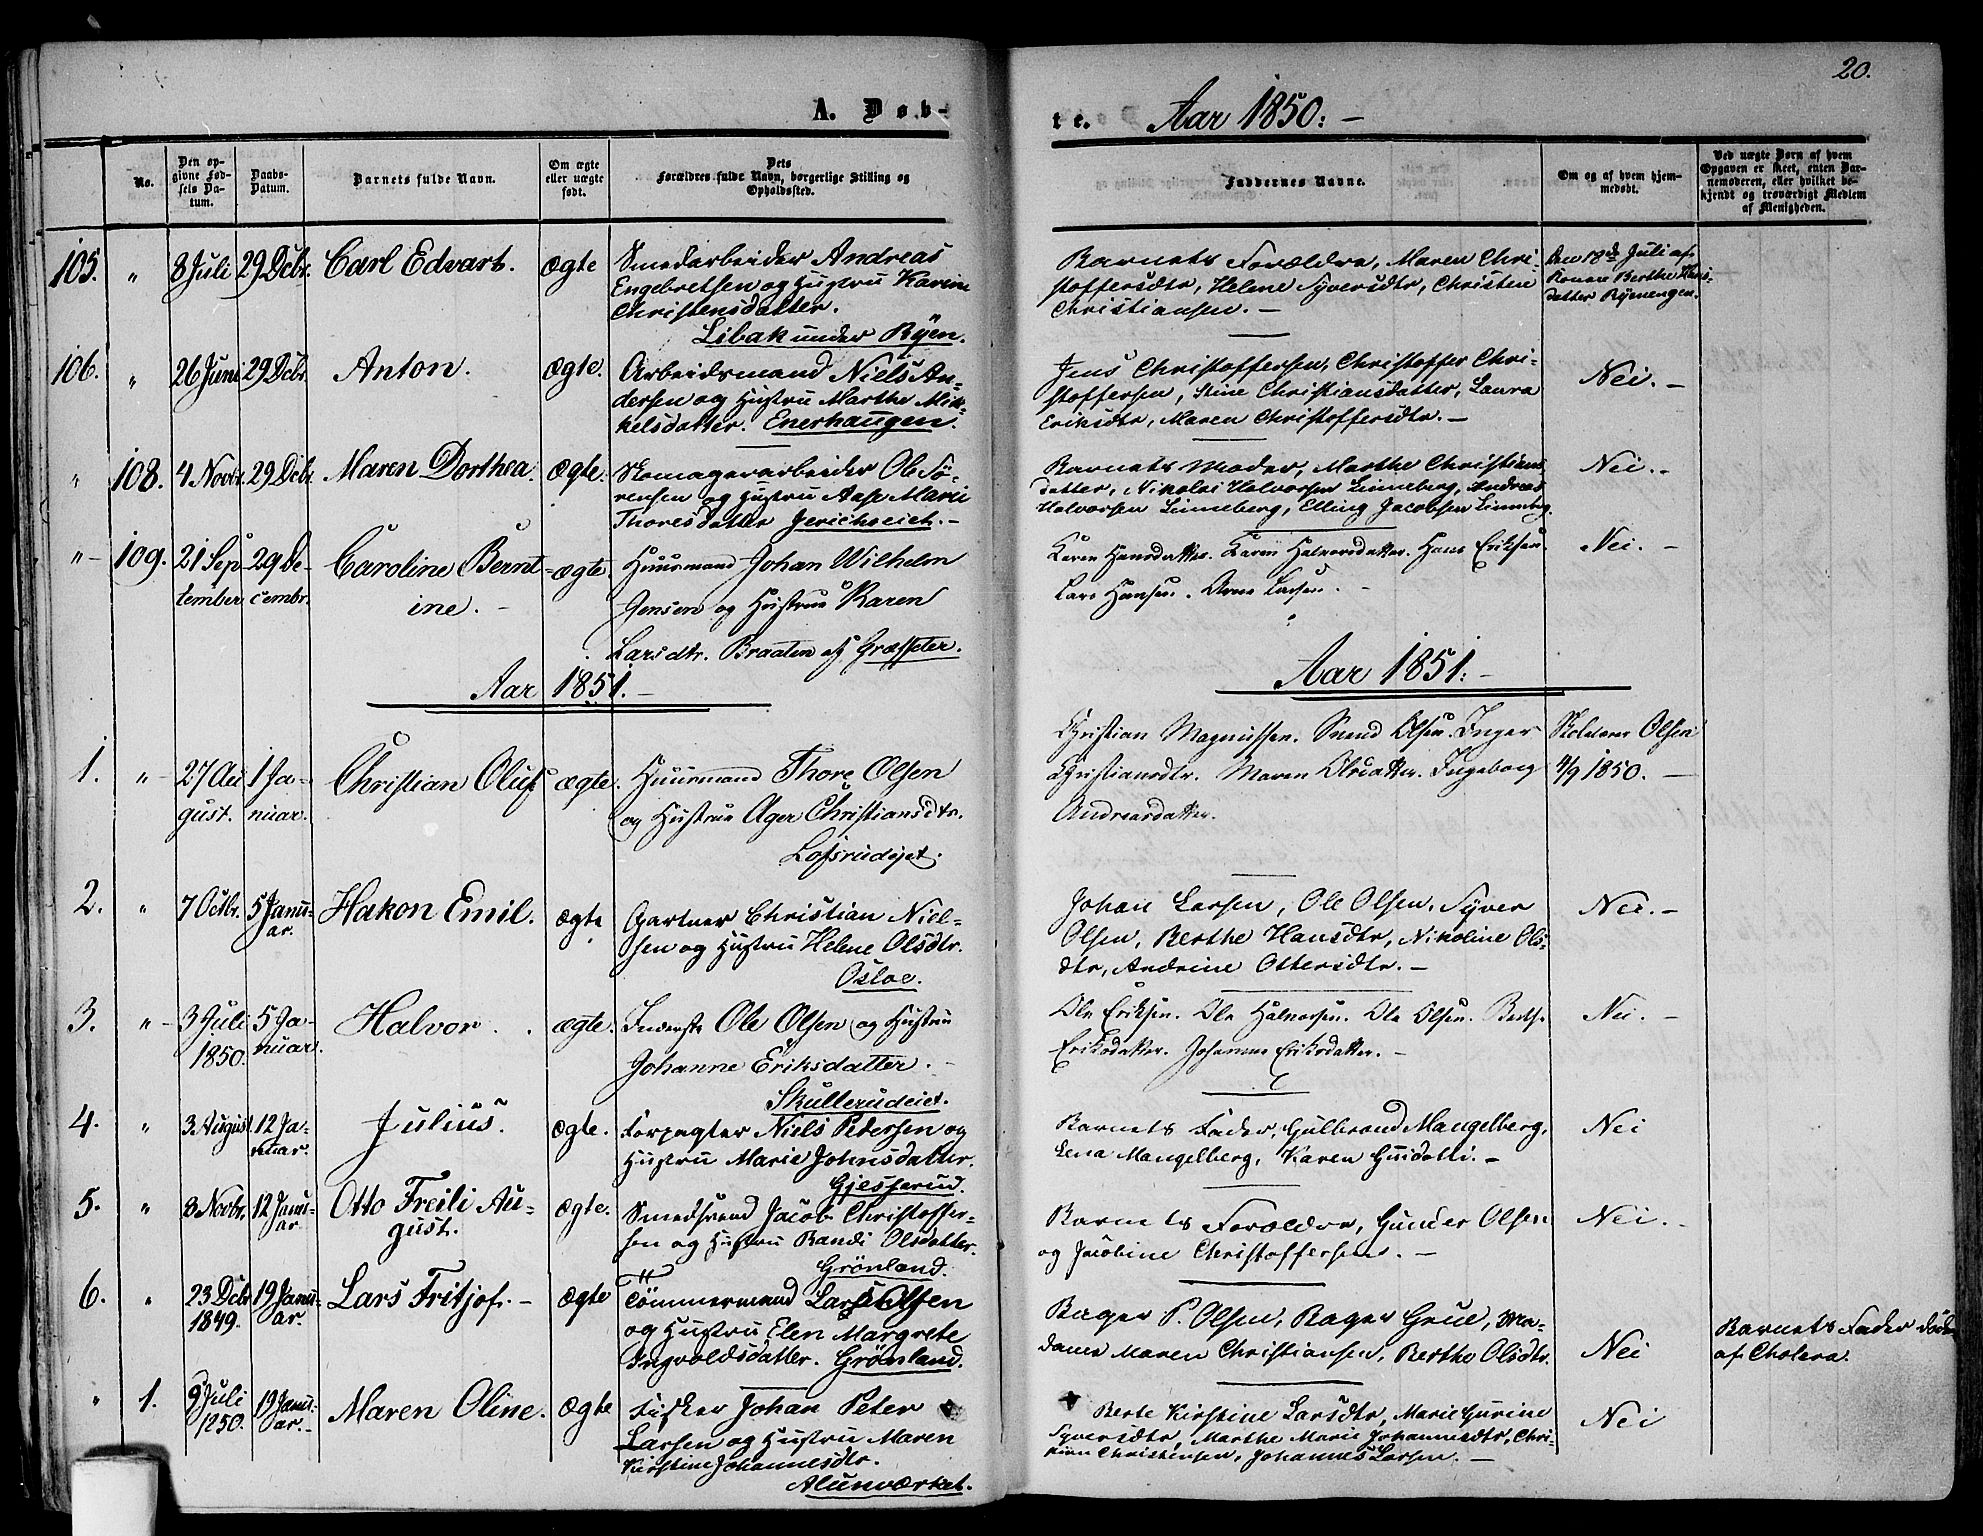 20.
A. Døb-
te. Aar 1850.
No.
Den op-
givne Fød-
sels Da-
tum.
Daabs-
Datum.
Barnets fulde Navn.
Om ægte
eller uægte
født.
Dets
Forældres fulde Navn, borgerlige Stilling og
Opholdssted.
Faddernes Navne.
Om og af hvem hjem-
medøbt.
Ved uægte Børn af hvem
Opgaven er skeet, enten Bar-
nemoderen, eller hvilket be-
kjendt og troværdigt Medlem
af Menigheden.
105. " 8 Juli 29 Dcbr. Carl Edvart. ægte Smedarbeider Andreas
Engebretsen og Hustru Karine
Christensdatter.
Libak under Ryen.
Barnets Forældre, Maren Chri-
stoffersdtr, Helene Syversdtr, Christen
Christiansen. -
Den 18de Juli af
Konen Berthe Hans-
datter Ryenengen.
106. " 26 Juni 29 Dcbr. Anton. ægte. Arbeidsmand Niels An-
dersen og Hustru Marthe Mik-
kelsdatter. Enerhaugen.
Jens Christoffersen, Christoffer Chri-
stoffersen, Stine Christiansdatter, Laura
Eriksdtr, Maren Christoffersdtr. -
Nei. -
" 108. 4 Novbr. 29 Dcbr. Maren Dorthea. ægte. Skomagerarbeider Ole Sö-
rensen og Hustru Aase Marie
Thoresdatter Jerichoeiet. -
Barnets Moder, Marthe Christians-
datter, Nikolai Halvorsen Linneberg, Andreas
Halvorsen Linneberg, Elling Jacobsen Linneberg.
Nei. -
" 109. 21 Sep- 29 De- Caroline Bernt- ægte. Huusmand Johan Wilhelm
tember cembr. ine. - Jensen og Hustrue Karen
Larsdtr. Braaten af Græsseter.
Karen Hansdatter. Karen Halvorsdatter. Hans Eriksen.
Lars Hansen. Arne Larsen. -
Nei. -
Aar 1851. -
Aar 1851. -
1. " 27 Au- 1 Ja- Christian Oluf ægte. Huusmand Thore Olsen
gust. nuar. og Hustrue Ager Christiansdtr.
Lofsrudejet.
Christian Magnussen. Svend Olsen. Inger
Christiansdtr. Maren Olsdatter. Ingeborg
Andreasdatter.
Skolelærer Olsen
4/9 1850. -
2. " 7 Octbr. 5 Janu-
ar. Hakon Emil. ægte Gartner Christian Niel-
sen og Hustru Helene Olsdtr.
Osloe.
Johan Larsen, Ole Olsen, Syver
Olsen, Berthe Hansdtr, Nikoline Ols-
dtr, Andrine Ottersdtr. -
Nei. -
3. " 3 Juli 5 Ja- Halvor. ægte. Inderste Ole Olsen og Hustrue
1850. nuar. Johanne Eriksdatter. -
Skullerudeiet.
Ole Eriksen. Ole Halvorsen. Ole Olsen. Berthe
Eriksdatter. Johanne Eriksdatter. -
Nei. -
4. " 3 August 12 Ja-
nuar. Julius. ægte. Forpagter Niels Petersen og
Hustru Marie Johnsdatter.
Gjesserud.
Barnets Fader, Gulbrand Mangelberg,
Lena Mangelberg, Karen Guidotti. -
Nei
5. " 8 Novbr. 12 Janu-
ar. Otto Freili Au-
gust. ægte. Smedsvend Jacob Christoffer-
sen og Hustru Randi Olsdatter.
Grönland.
Barnets Forældre, Gunder Olsen
og Jacobine Christoffersen. -
Nei. -
6. " 23 Dcbr 19 Janu-
1849. ar. Lars Fritjof. - ægte Tömmermand Lars Olsen
og Hustru Elen Margrete
Ingvoldsdatter. Grönland.
Bager P. Olsen, Bager Grue, Ma-
dame Maren Christiansen, Berthe Olsdtr.
Nei
Barnets Fader døde
af Cholera.
" 1. 9 Juli 19 Janu-
1850. ar. - Maren Oline. ægte Fisker Johan Peter
Larsen og Hustru Maren
Kirstine Johannesdtr.
Alunværket.
Berte Kirstine Larsdtr, Marie Gurine
Syversdtr, Marthe Marie Johannesdtr, Chri-
stian Christensen, Johannes Larsen. -
Nei